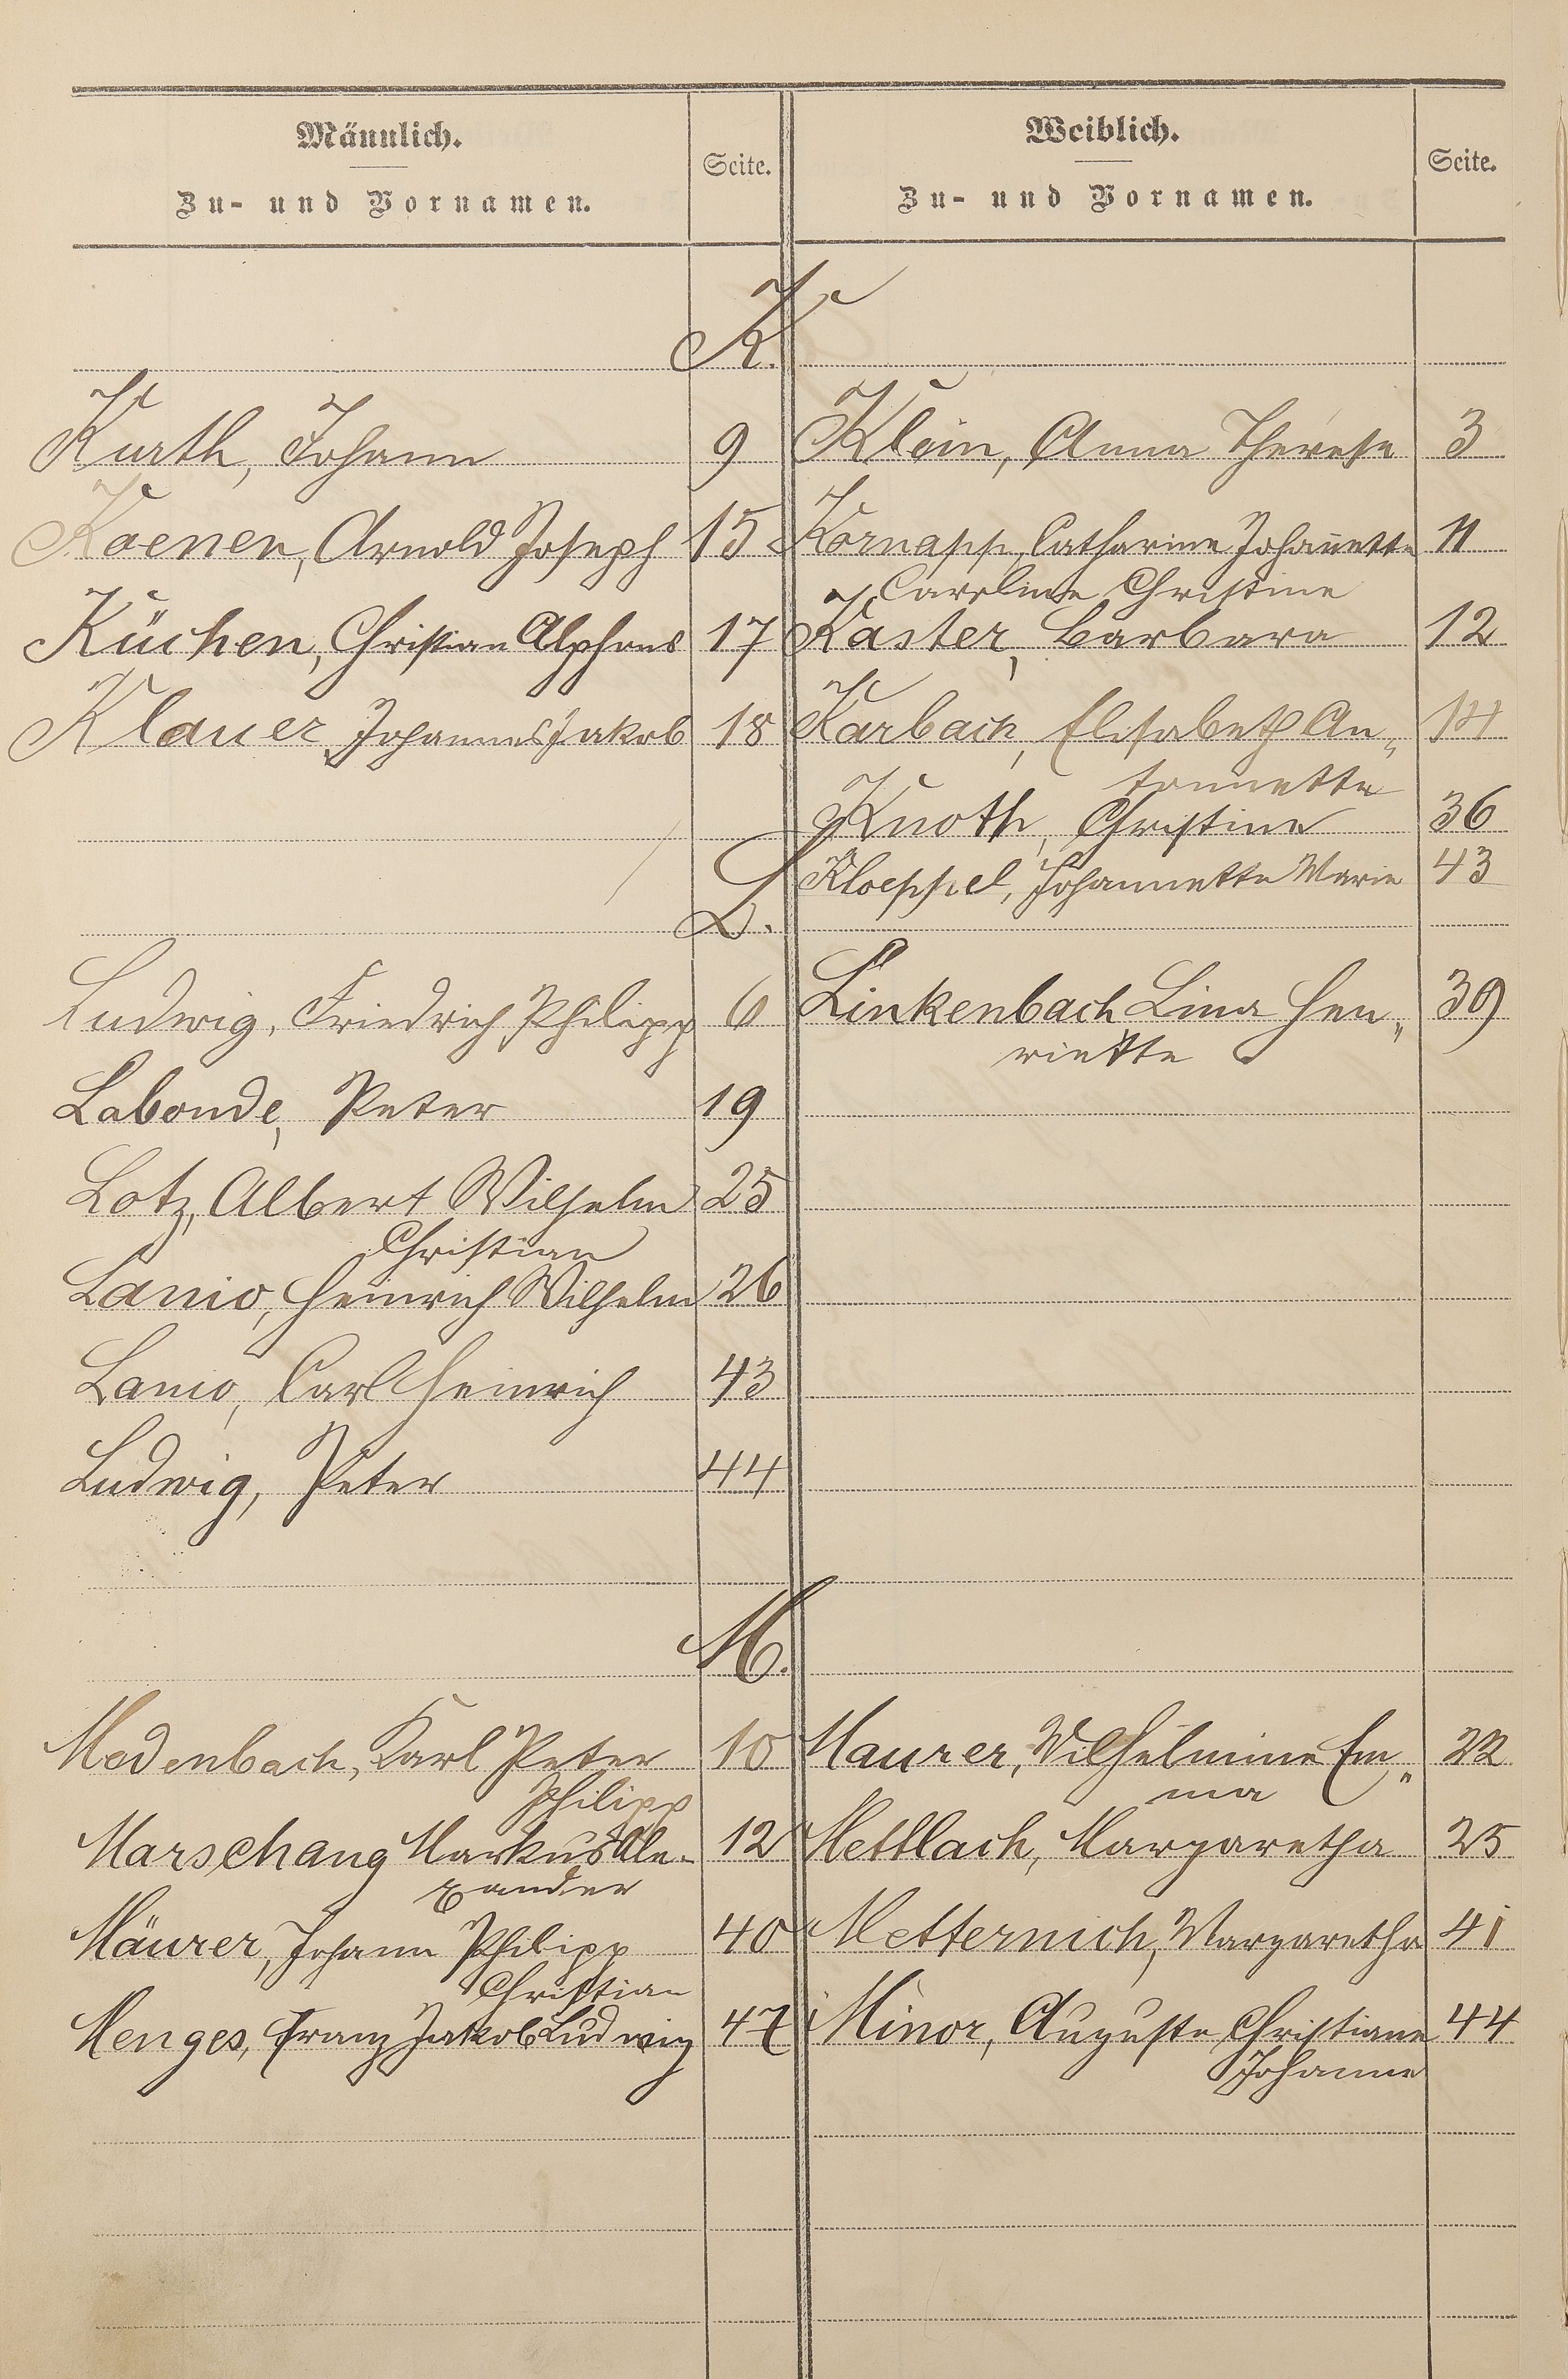 Männlich.
Zu- und Vornamen.
Seite.
Weiblich.
Zu- und Vornamen.
Seite.
K.
Kurth, Johann 9
Klein, Anna Therese 3
Koenen, Arnold Joseph 15
Kornapp, Catharine Johañette 11
Caroline Christine
Küchen, Christian Alphons 17
Kaster, Barbara 12
Klauer, Johannes Jakob 18
Karbach, Elisabeth An„ 14
tonnette
Knoth, Christine 36
Kloeppel, Johannette Marie 43
L.
Ludwig, Friedrich Philipp 6
Linkenbach Lina Hen„ 39
riette
Labonde, Peter 19
Lotz, Albert Wilhelm 25
Christian
Lanio, Heinrich Wilhelm 26
Lanio, Carl Heinrich 43
Ludwig, Peter 44
M.
Medenbach, Karl Peter 10
Philipp
Maurer, Wilhelmine Em„ 22
ma
Marschang Markus Ale-
xander 12
Mettlach, Margaretha 25
Mäurer, Johann Philipp 40
Christian
Metternich, Margaretha 41
Menges, Franz Jakob Ludwig 47
Minor, Auguste Christiane 44
Johanne